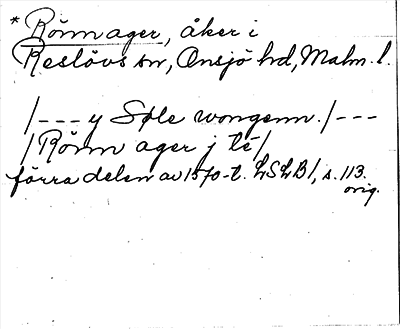 * Rönn ager, åker i
Reslövs sn, Onsjö hd, Malm. l.
/--- y Søle wongenn. /---
/Rönn ager j tē/
förra delen av 1570-t. LSLB1, s. 113.
orig.